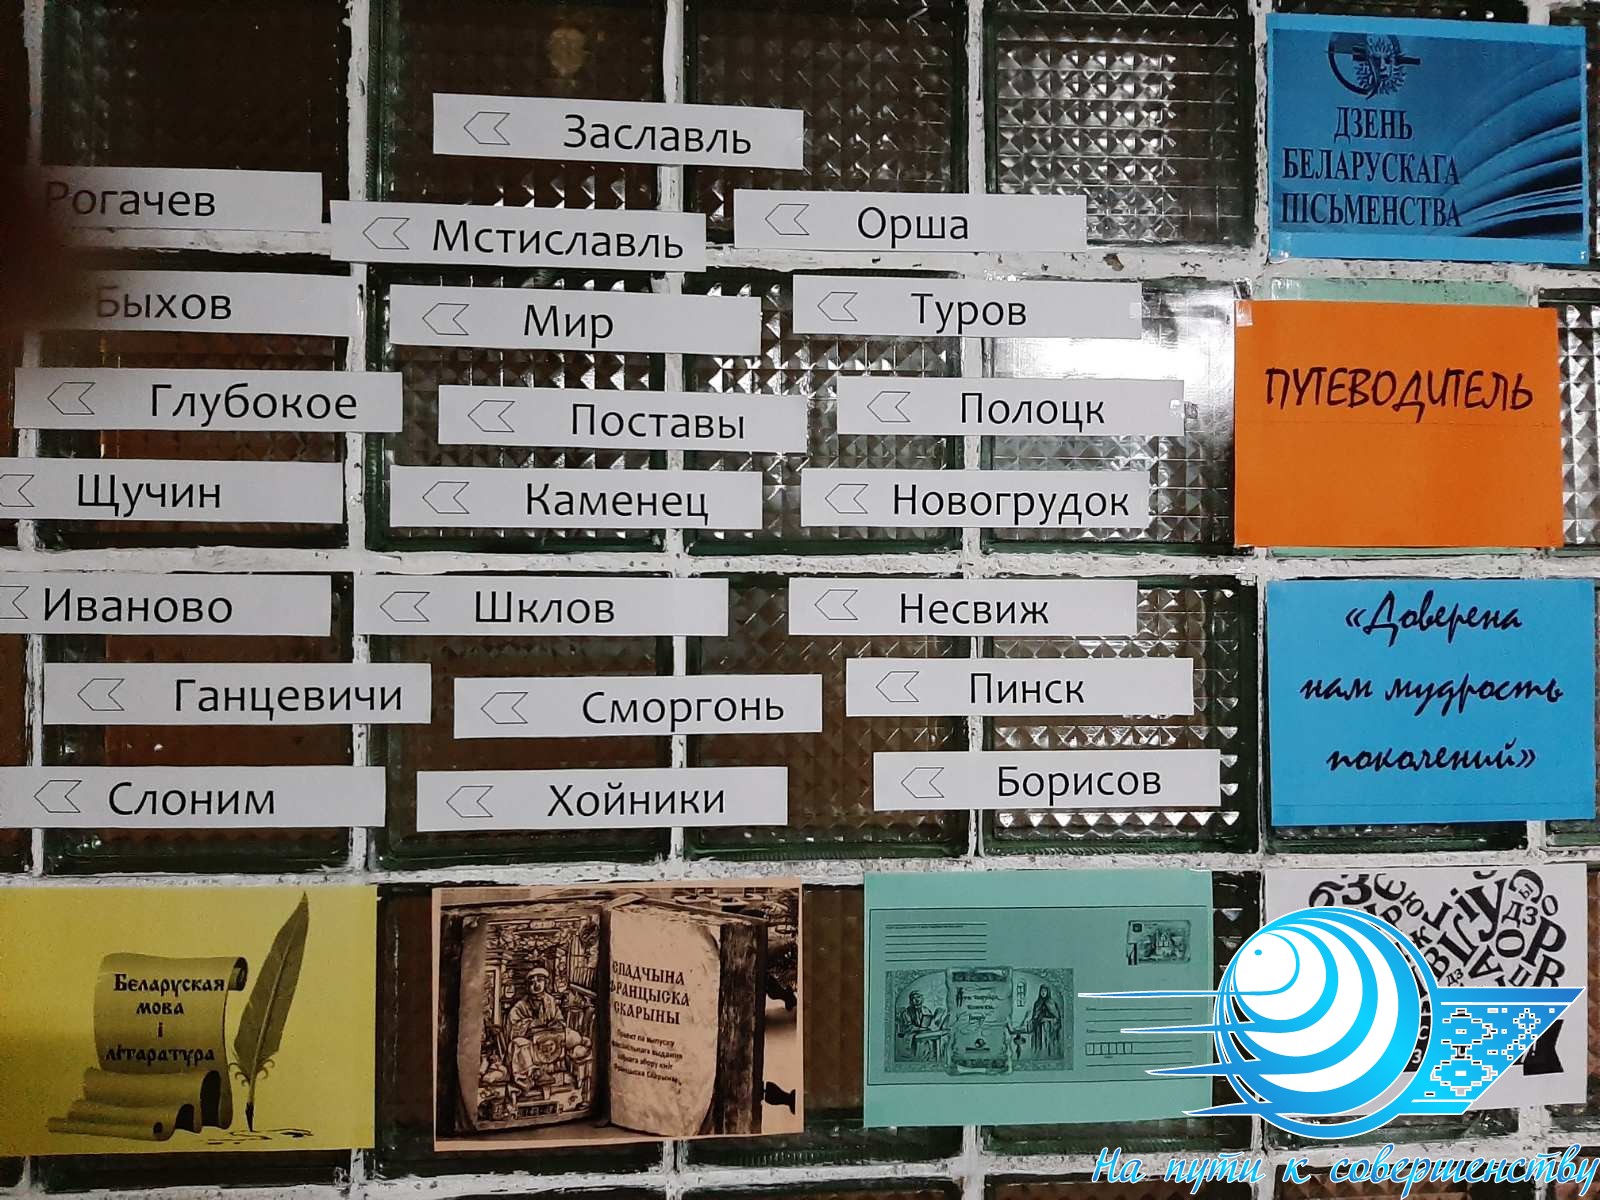 Заславль
Рогачев
Мстиславль
Орша
Быхов
Мир
Туров
Глубокое
Поставы
Полоцк
Щучин
Каменец
Новогрудок
Иваново
Шклов
Несвиж
Ганцевичи
Сморгонь
Пинск
Слоним
Хойники
Борисов
ДЗЕНЬ
БЕЛАРУСКАГА
ПІСЬМЕНСТВА
ПУТЕВОДИТЕЛЬ
«Доверена
нам мудрость
поколений»
Беларуская
мова
і
літаратура
СПАДЧЫНА
ФРАНЦЫСКА
СКАРЫНЫ
На пути к совершенству